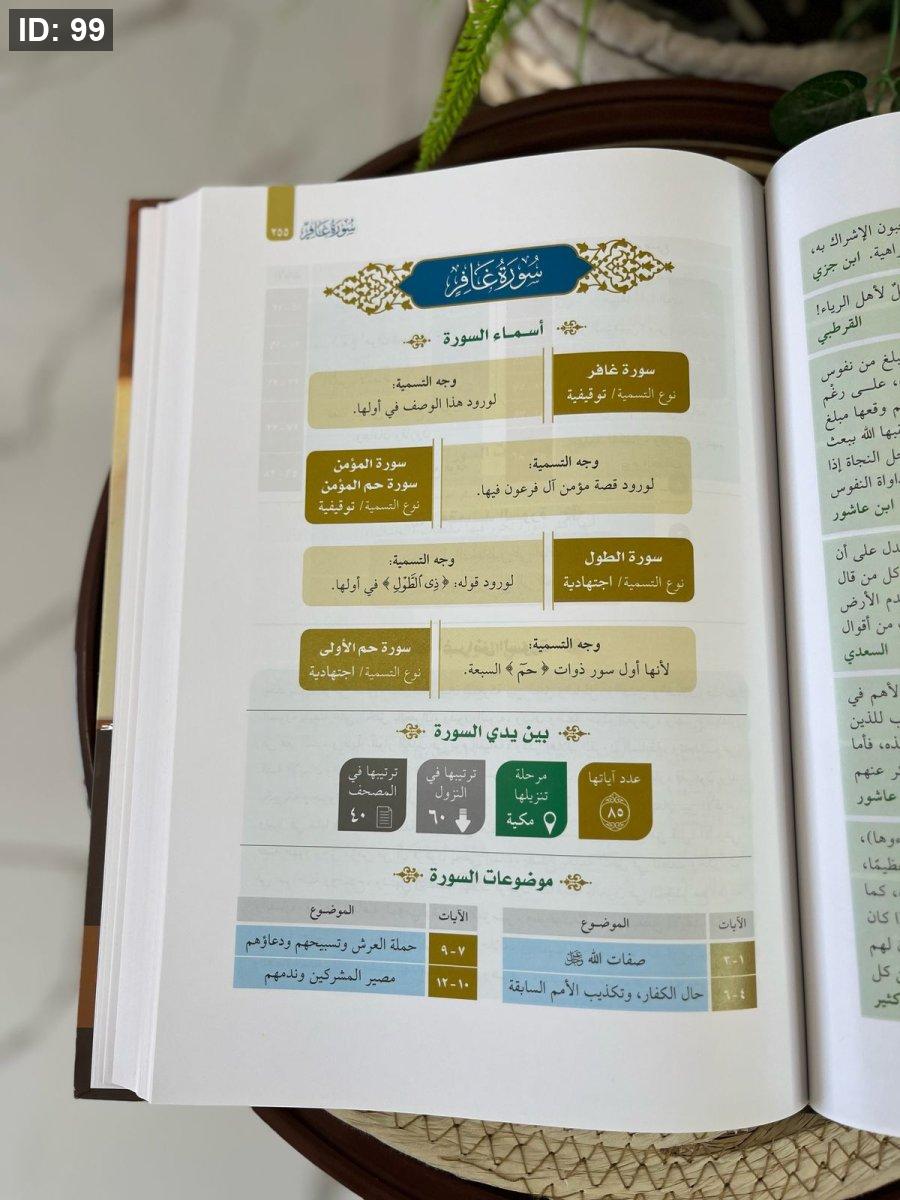 ID: 99
سورة غافر
٢٥٥
سُورَةُ غَافِرٍ
أسماء السورة
سورة غافر
نوع التسمية/ توقيفية
وجه التسمية:
لورود هذا الوصف في أولها.
وجه التسمية:
لورود قصة مؤمن آل فرعون فيها.
سورة المؤمن
سورة حم المؤمن
نوع التسمية/ توقيفية
سورة الطول
نوع التسمية/ اجتهادية
وجه التسمية:
لورود قوله: ﴿ذِى ٱلطَّوْلِ﴾ في أولها.
وجه التسمية:
لأنها أول سور ذوات ﴿حمٓ﴾ السبعة.
سورة حم الأولى
نوع التسمية/ اجتهادية
بين يدي السورة
عدد آياتها
٨٥
مرحلة
تنزيلها
مكية
ترتيبها في
النزول
٦٠
ترتيبها في
المصحف
٤٠
موضوعات السورة
الآيات الموضوع
١-٣ صفات الله ﷻ
٤-٦ حال الكفار، وتكذيب الأمم السابقة
الآيات الموضوع
٧-٩ حملة العرش وتسبيحهم ودعاؤهم
١٠-١٢ مصير المشركين وندمهم
الإشراك به،
ابن جزي
لأهل الرياء!
القرطبي
من نفوس
على رغْم
وقعها مبلغ
الله ببعث
النجاة إذا
النفوس
ابن عاشور
على أن
كل من قال
الأرض
من أقوال
السعدي
في
للذين
فأما
عنهم
عاشور
كما
كان
لهم
كل